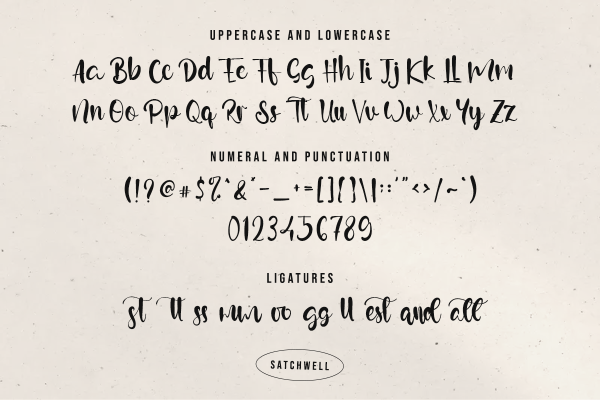 UPPERCASE AND LOWERCASE
Aa Bb Cc Dd Ee Ff Gg Hh Ii Jj Kk Ll Mm
Nn Oo Pp Qq Rr Ss Tt Uu Vv Ww Xx Yy Zz
NUMERAL AND PUNCTUATION
(!?@#$%^&*-_+=[]{}\|:;'"<>/~`)
0123456789
LIGATURES
st tt ss nun oo gg ll est and all
SATCHWELL